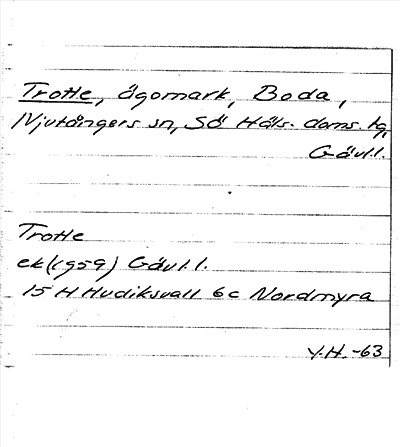 Trotte, ägomark, Boda,
Njutångers sn, Sö Häls. doms. tg,
Gävl.l.
Trotte
ek(1959) Gävl.l.
15 H Hudiksvall 6c Nordmyra
Y.H. -63